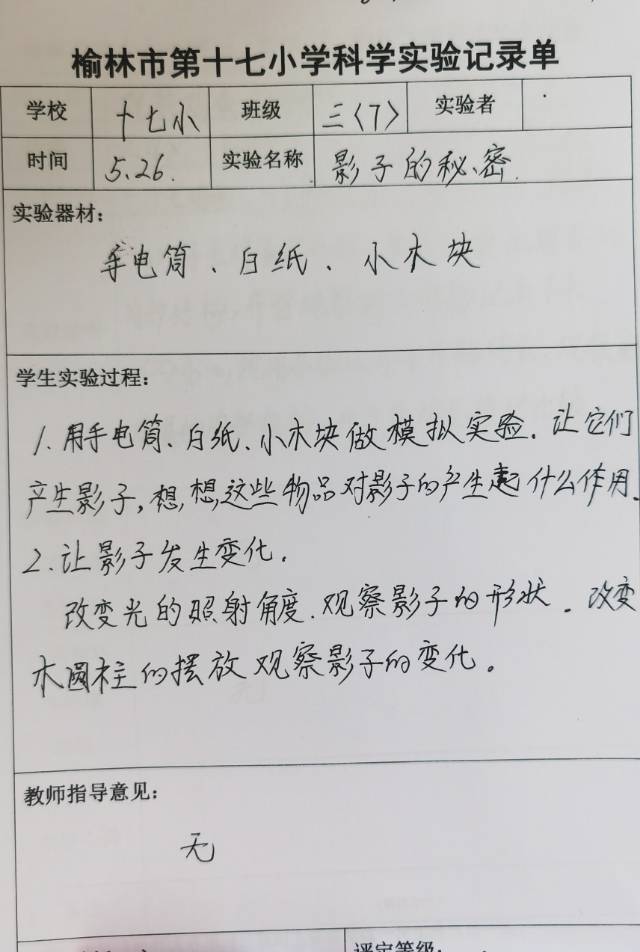 榆林市第十七小学科学实验记录单
学校 十七小 班级 三〈7〉 实验者
时间 5.26. 实验名称 影子的秘密.
实验器材：
手电筒、白纸、小木块
学生实验过程：
1.用手电筒、白纸、小木块做模拟实验.让它们
产生影子,想,想这些物品对影子的产生起什么作用.
2.让影子发生变化.
改变光的照射角度.观察影子的形状.改变
木圆柱的摆放观察影子的变化。
教师指导意见：
无
评定等级: